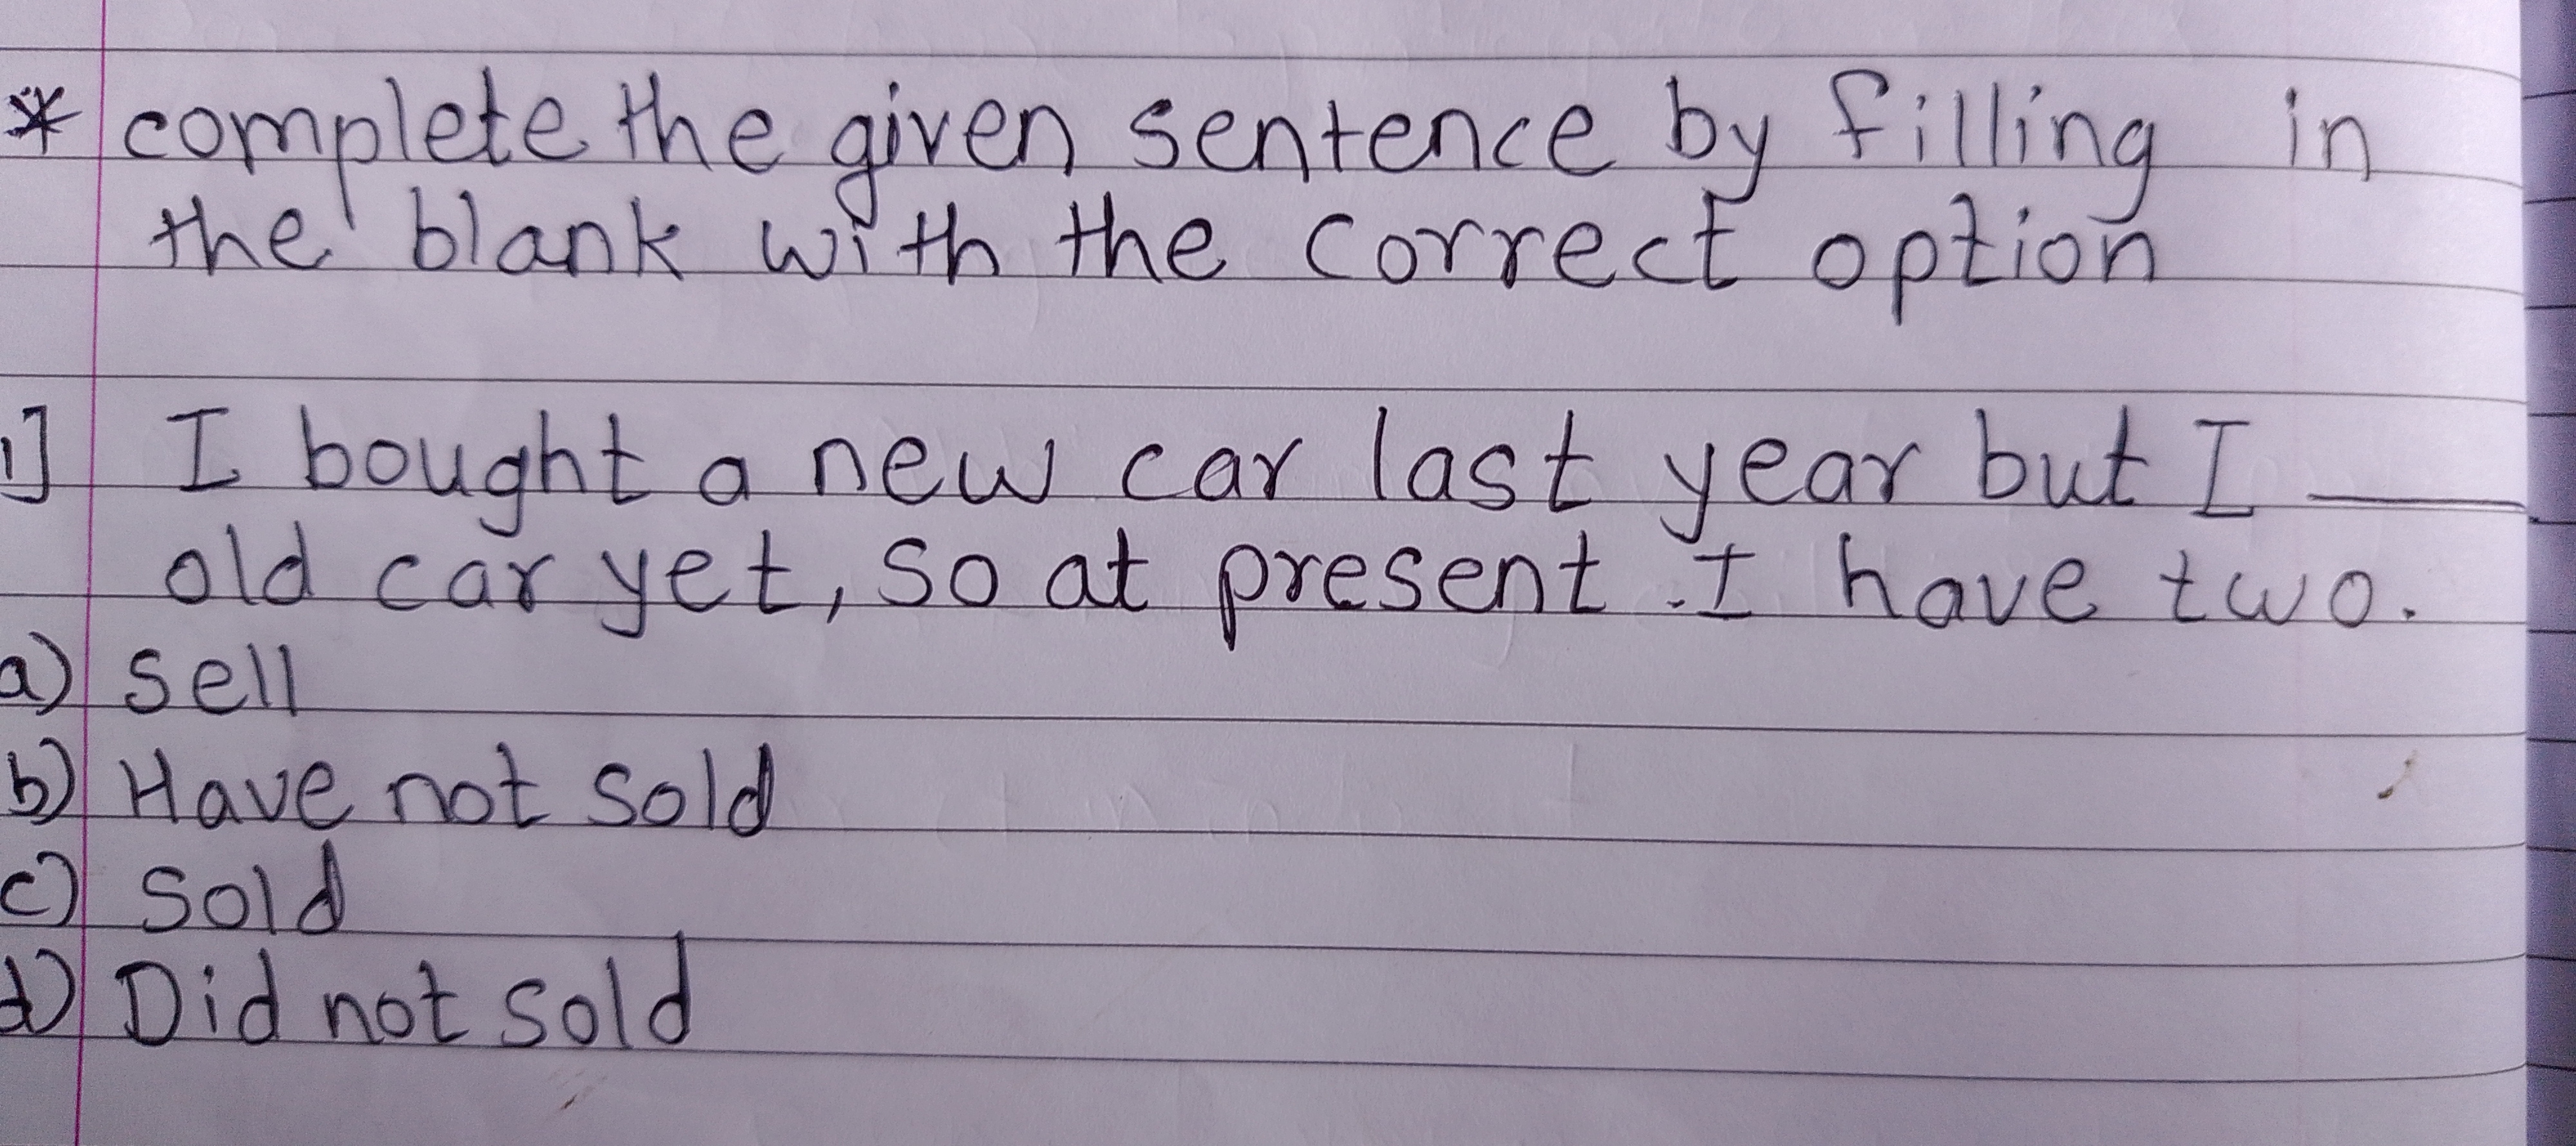 * complete the given sentence by filling in
the blank with the correct option
1] I bought a new car last year but I ____
old car yet, so at present .I have two.
a) sell
b) Have not sold
c) sold
d) Did not sold